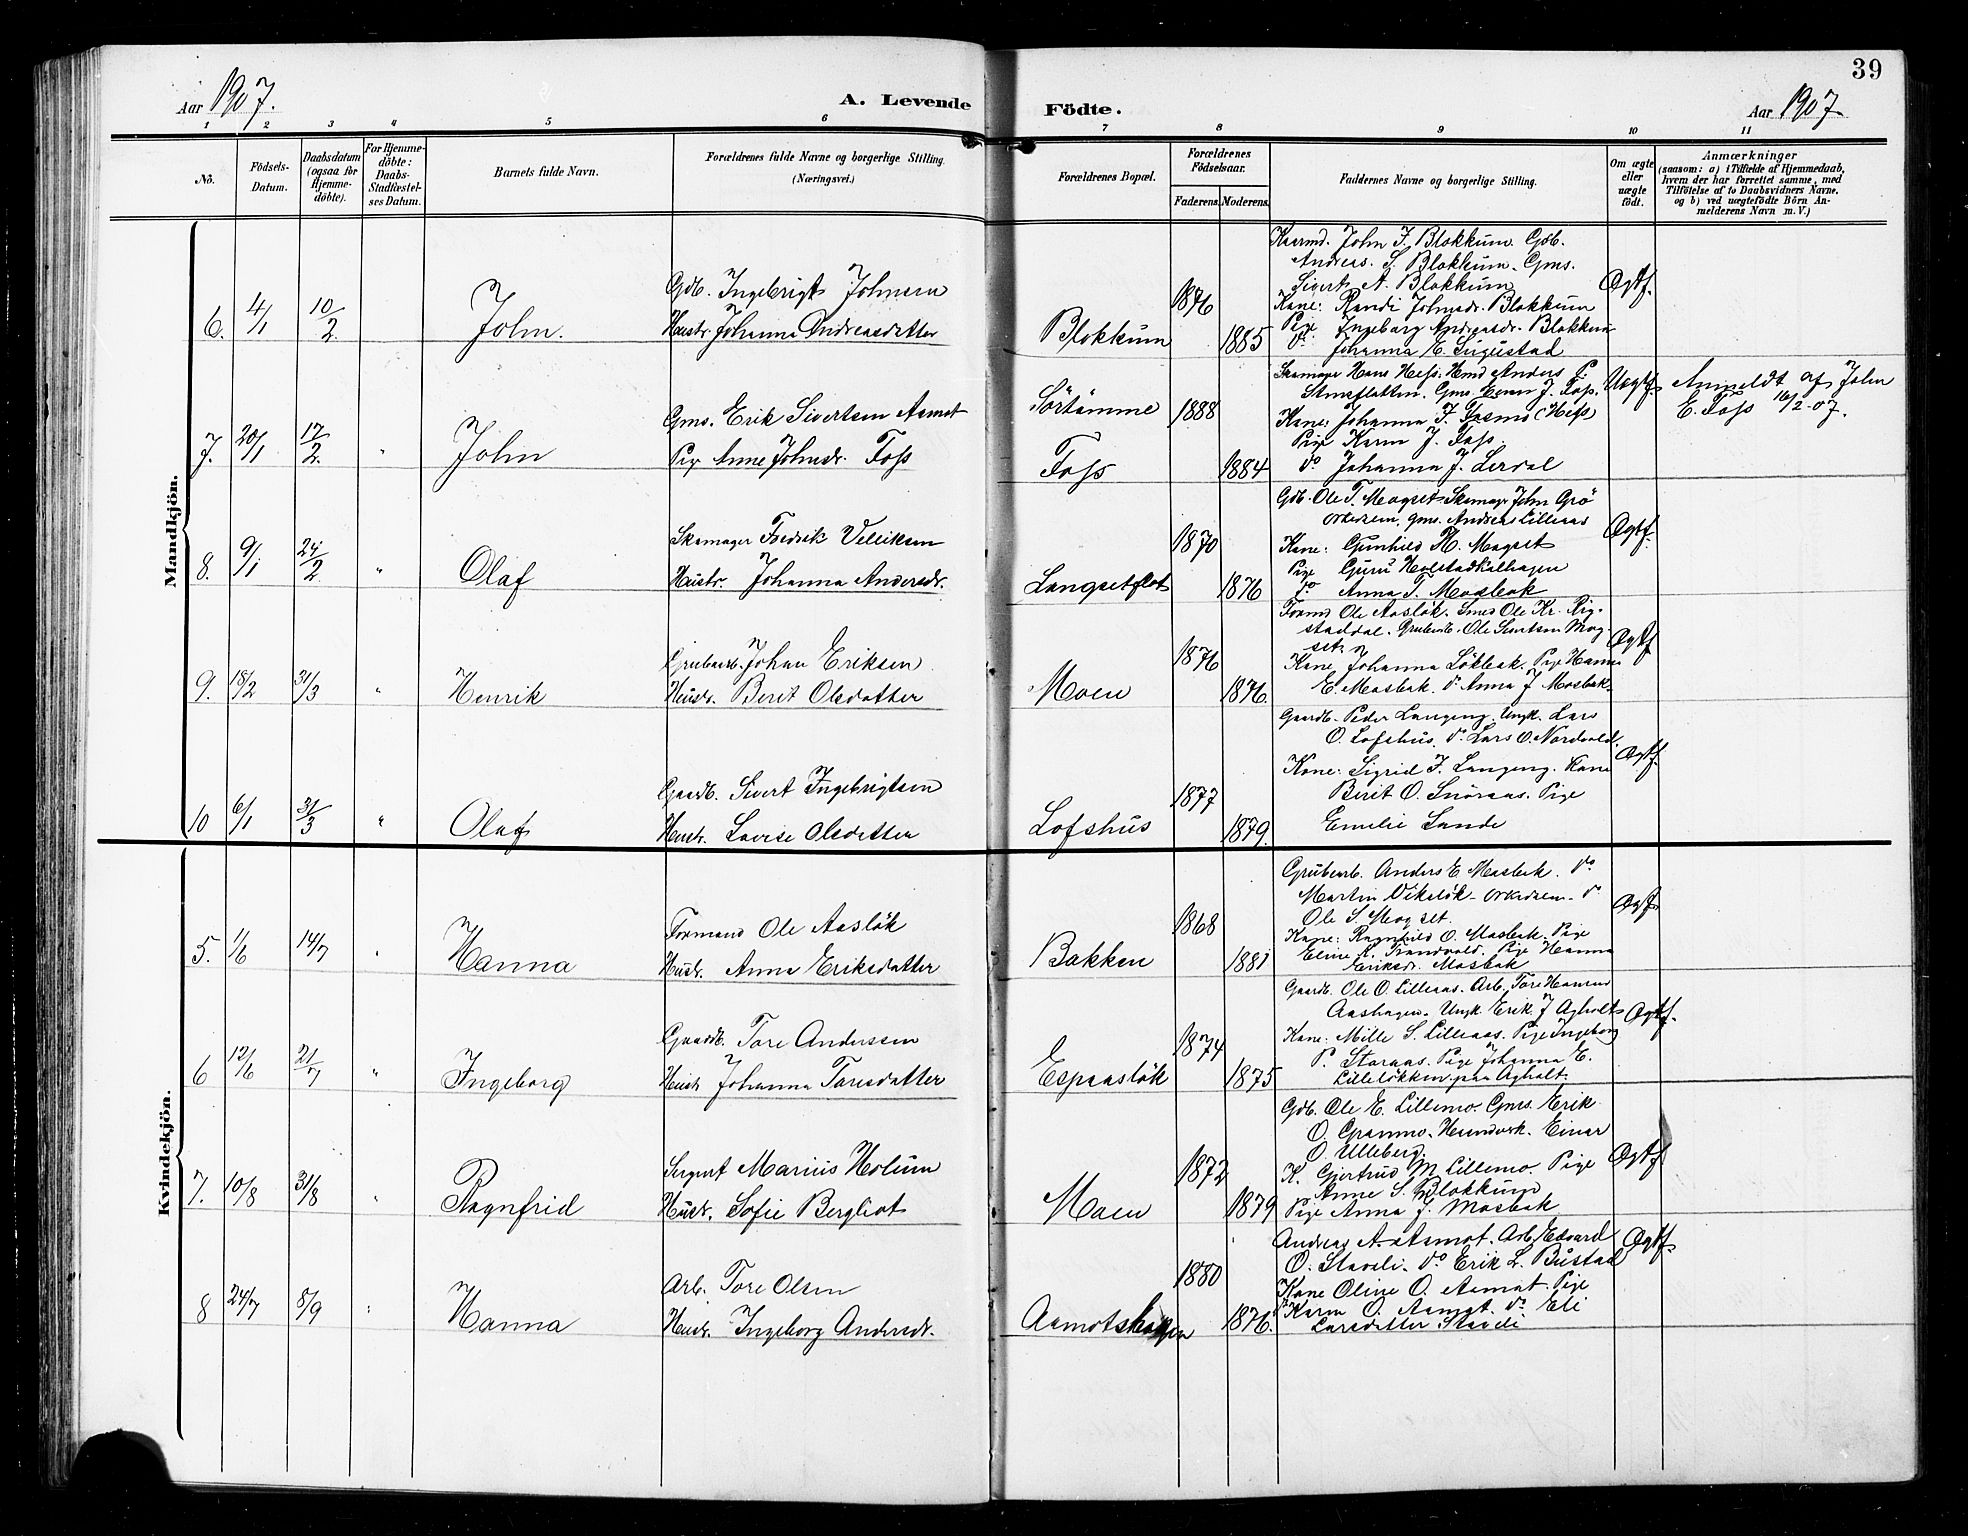 39
Aar 1907.
A. Levende Födte.
Aar 1907
1 2 3 4 5 6 7 8 9 10 11
No.
Födsels-
Datum.
Daabsdatum
(ogsaa for
Hjemme-
döbte).
For Hjemme-
döbte:
Daabs-
Stadfæstel-
ses Datum.
Barnets fulde Navn.
Forældrenes fulde Navne og borgerlige Stilling.
(Næringsvei.)
Forældrenes Bopæl.
Forældrenes
Födselsaar.
Faderens. Moderens.
Faddernes Navne og borgerlige Stilling.
Om ægte
eller
uægte
födt.
Anmærkninger
(saasom: a) i Tilfælde af Hjemmedaab,
hvem der har forrettet samme, med
Tilföielse af to Daabsvidners Navne,
og b) ved uægtefödte Börn An-
melderens Navn m. V.)
Mandkjön.
6. 4/1 10/2 John.
Gdb. Ingebrigt Johnsen
Hustr. Johanna Andreasdatter
Blokkum 1876 1885
Kaarmd. John I. Blokkum. Gdb.
Andreas. S. Blokkum. Gms.
Sigert A. Blokkum
Kone: Randi Johnsdr. Blokkum
Pige Ingeborg Andreasdr. Blokkum
do Johanna E. Sugustad
Ægtf.
7. 20/1 17/2. " John
Gms. Erik Sivertsen Aamot
Pige Anne Johnsdr. Foss
Sörtömme 1888
Foss 1884
Skomager Hans Hess. Hmd Anders P.
Gms. Esten J. Foss.
Kone: Johanna F. (Hess)
Pige Karen J. Foss.
do Johanna J. Lerdal
Uægtf.
Anmeldt af John
E. Foss 16/2-07.
8. 9/1 24/2 " Olaf
Skomager Fredrik Velliksen
Hustr. Johanna Andersdr.
Langsetflot 1870 1876
Gdb. Ole T. Mogset Skomager John Grö
Orkedalen. Gms. Andreas Lilleaas
Kone: Gunhild H. Mogset
Pige Guru
do Anna T. Mosbak
Ægtf.
9. 18/2 31/3 " Henrik
Grubearb. Johan Eriksen
Hustr. Beret Olsdatter
Moen 1876 1876.
Formd Ole Aaslök. Smed Ole Kr. Rig-
staddal. Grubearb. Ole Sivertsen Mog-
set.
Kone Johanna Lökbak. Pige Hanna
E. Mosbak. do Anna J Mosbak.
Ægtf
10 6/1 31/3 " Olaf
Gaardb. Sivert Ingebrigtsen
Hustr. Lovise Olsdatter
Lofshus 1877 1879.
Gaardb. Peder Langeng. Ungk. Lars
O. Lofshus. do Lars O. Nordvold.
Kone: Sigrid F. Langeng. Kone
Berit O. Snöraas. Pige
Emelie Sande
Ægtf.
Kvindekjön.
5. 1/6 14/7 " Hanna
Formand Ole Aaslök
Hustr. Anna Eriksdatter
Bakken 1868 1881
Grubearb. Anders E Mosbak. do
Martin Vikslök - Orkedalen - do
Ole S. Mogset.
Kone: Ragnhild O. Mosbak. Pige
Eline K. Pige Hanna
Eriksdr. Mosbak
Ægtf.
6 12/6 21/7 " Ingeborg
Gaardb. Tore Andersen
Hustr Johanna Toresdatter
Espaaslök 1874 1875
Gaardb. Ole O. Lilleaas. Arb. Tore Hansen
Aashagen. Ungk. Erik J Agholt
Kone: Mille S. Lilleaas. Pige Ingeborg
P. Storaas. Pige Johanna E.
Lillelökken paa Agholt.
Ægtf.
7. 10/8 31/8 " Ragnfrid
Sergent Marius Holum
Hustr. Sofie Bergliot
Moen 1872 1879
Gdb. Ole E. Lillemo. Gms. Erik
O. Granmo. Haandverk. Einar
O. Ulleberg.
K. Gjertrud M Lillemo. Pige
Anne S. Blokkum
Pige Anna J. Mosbak
Ægtf
8 24/7 8/9 " Hanna
Arb. Tore Olsen
Hustr. Ingeborg Andersdr.
Aamotshagen 1880 1876.
Andreas A. Aamot. Arb. Edvard
O. Staveli. do Erik L. Bustad
Kone Oline O. Aamot. Pige
Karen O. Aamot. do Eli
Larsdatter Staveli
Ægtf.